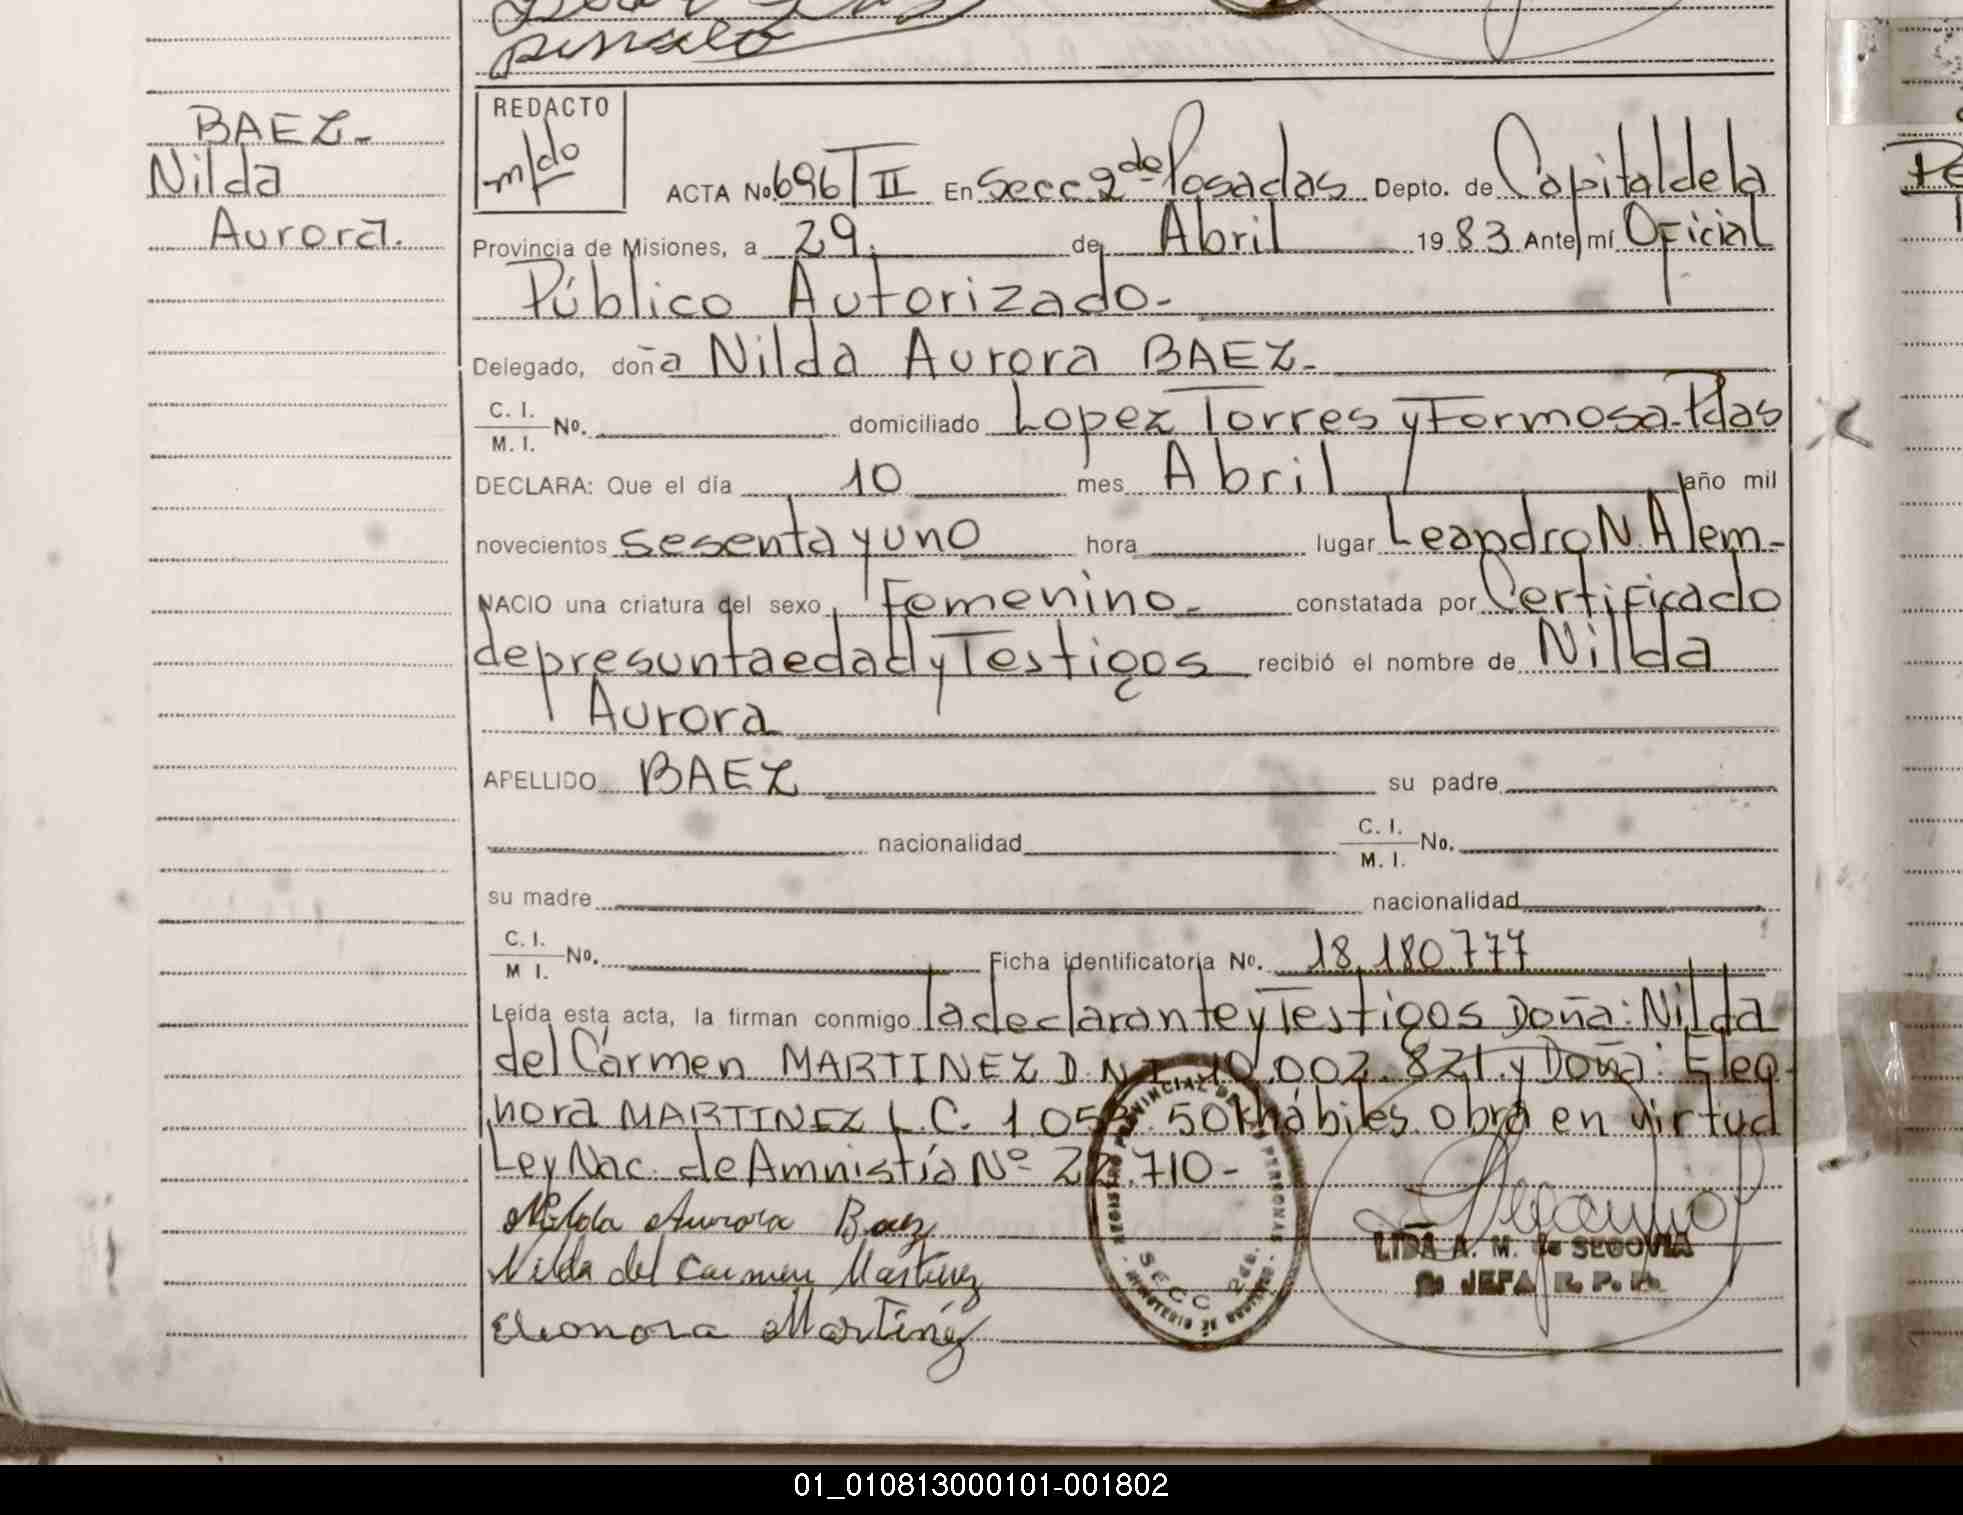 pinsalo
BAEZ-
Nilda
Aurora.
REDACTO
m/do
ACTA No. 696/T II En Secc. 2da Posadas Depto. de Capital de la
Provincia de Misiones, a 29. de Abril 1983 Ante mí Oficial
Público Autorizado-
Delegado, doña Nilda Aurora BAEZ-
C. I.
M. I. No. domiciliado Lopez Torres y Formosa-Pdas
DECLARA: Que el día 10 mes Abril año mil
novecientos sesenta y uno hora lugar Leandro N. Alem-
NACIO una criatura del sexo Femenino- constatada por Certificado
de presunta edad y Testigos recibió el nombre de Nilda
Aurora
APELLIDO BAEZ su padre
nacionalidad C. I.
M. I. No.
su madre nacionalidad
C. I.
M I. No. Ficha identificatoria No. 18.180.777
Leída esta acta, la firman conmigo la declarante y Testigos Doña: Nilda
del Carmen MARTINEZ D.N.I. 10.002.821. y Doña: Eleo-
nora MARTINEZ L.C. 1.053.50 hábiles. obra en virtud
Ley Nac. de Amnistía Nº 22.710-
Nilda Aurora Baez
Nilda del Carmen Martinez
Eleonora Martínez
REGISTRO PROVINCIAL DE LAS PERSONAS
SECC. 2da.
LIDA A. M. de SEGOVIA
JEFA R. P. P.
01_010813000101-001802